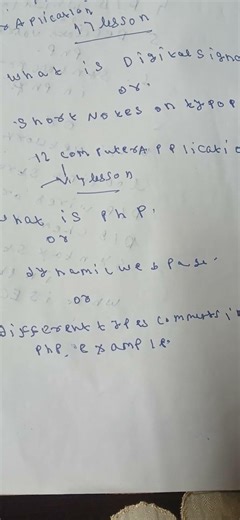 r Aplication
17 lesson
what is Digital Sign
or.
Short Notes on typop
12 computerApplicatio
lesson
what is PhP.
or
dynamic web page.
or
Different types comments in
PhP. example.